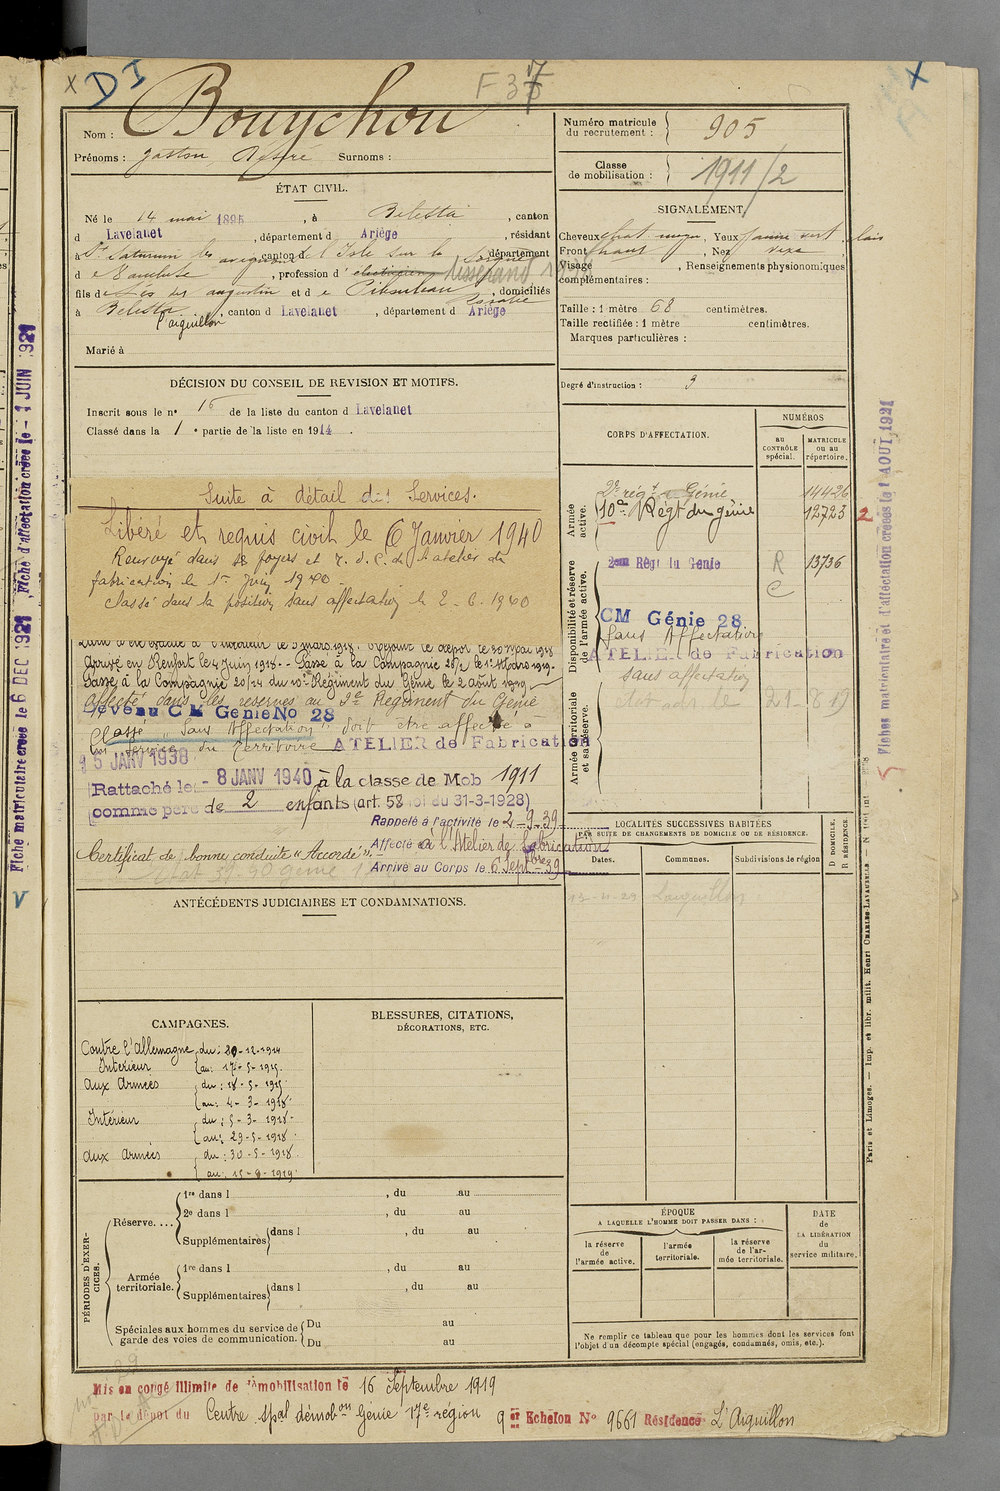 x DI F 37
Nom : Bouychou
Prénoms : Gaston Désiré Surnoms :
ÉTAT CIVIL.
Né le 14 mai 1895, à Bélesta, canton
d Lavelanet, département d Ariège, résidant
à St Saturnin les avignon, canton de l'Isle sur la Sorgue, département
d e Vaucluse, profession d' électricien tisserand
fils de augustin et d e , domiciliés
à Bélesta l'aiguillon, canton d Lavelanet, département d Ariège
Marié à
DÉCISION DU CONSEIL DE REVISION ET MOTIFS.
Inscrit sous le n° 16 de la liste du canton d Lavelanet
Classé dans la 1e partie de la liste en 1914.
Suite à détail des Services.
Libéré et requis civil le 6 Janvier 1940
Renvoyé dans ses foyers et r. d. C. de l'atelier de
fabrication le 1er Juin 1940
Classé dans la position sans affectation le 2-6.1940
Arrivé en Renfort le 4 juin 1918.- Passé à la Compagnie 26/2 le 1er Mars 1919-
Passé à la Compagnie 20/24 du 10e Régiment du Génie le 2 août 1919
Affecté dans les réserves au 2e Régiment du Génie
devenu C M Génie No 28
Classé "Sans Affectation" doit être affecté à
un service du Territoire ATELIER de Fabrication
15 JANV 1938
Rattaché le - 8 JANV 1940 à la classe de Mob 1911
comme père de 2 enfants (art. 58 loi du 31-3-1928)
Rappelé à l'activité le 2-9-39
Affecté à l'Atelier de fabrication
Certificat de bonne conduite "Accordé"
Arrivé au Corps le 6 Septbre 39
ANTÉCÉDENTS JUDICIAIRES ET CONDAMNATIONS.
CAMPAGNES.
Contre l'Allemagne du : 20-12-1914
Intérieur au : 17-5-1915
aux Armées du : 18-5-1915
au : 4-3-1918
Intérieur du : 5-3-1918
au : 29-5-1918
aux Armées du : 30-5-1918
au : 15-9-1919
BLESSURES, CITATIONS,
DÉCORATIONS, ETC.
PÉRIODES D'EXERCICES.
Réserve....
1re dans l , du au
2e dans l , du au
Supplémentaires dans l , du au
Armée territoriale.
1re dans l , du au
Supplémentaires dans l , du au
Spéciales aux hommes du service de garde des voies de communication.
Du au
Du au
Numéro matricule du recrutement : 905
Classe de mobilisation : 1911/2
SIGNALEMENT
Cheveux chat. moyen, Yeux jaune vert clair
Front haut, Nez vexe
Visage , Renseignements physionomiques
complémentaires :
Taille : 1 mètre 68 centimètres.
Taille rectifiée : 1 mètre centimètres.
Marques particulières :
Degré d'instruction : 3
CORPS D'AFFECTATION.
NUMÉROS
au CONTRÔLE spécial.
MATRICULE ou au répertoire.
Armée active.
2e régt de Génie 14426
10e Régt du génie 12723 2
Disponibilité et réserve de l'armée active.
2eme Régt du Génie R C 13736
CM Génie 28
Sans Affectation
ATELIER de Fabrication
sans affectation
Armée territoriale et sa réserve.
LOCALITÉS SUCCESSIVES HABITÉES
PAR SUITE DE CHANGEMENTS DE DOMICILE OU DE RÉSIDENCE.
Dates. Communes. Subdivisions de région D DOMICILE. R RÉSIDENCE.
L'aiguillon
ÉPOQUE
A LAQUELLE L'HOMME DOIT PASSER DANS :
la réserve de l'armée active.
l'armée territoriale.
la réserve de l'armée territoriale.
DATE de LA LIBÉRATION du service militaire.
Ne remplir ce tableau que pour les hommes dont les services font
l'objet d'un décompte spécial (engagés, condamnés, omis, etc.).
Mis en congé illimité de démobilisation le 16 Septembre 1919
par le dépôt du Centre spal démobon Génie 17e région 9er Echelon No 9661 Résidence L'Aiguillon
Fiche matriculaire créée le 6 DEC 1921 Fiche d'affectation créée le - 1 JUIN 1921
V
Fiches matriculaire et d'affectation créées le 1 AOUT 1921
Paris et Limoges. — Imp. et libr. milit. Henri CHARLES-LAVAUZELLE.